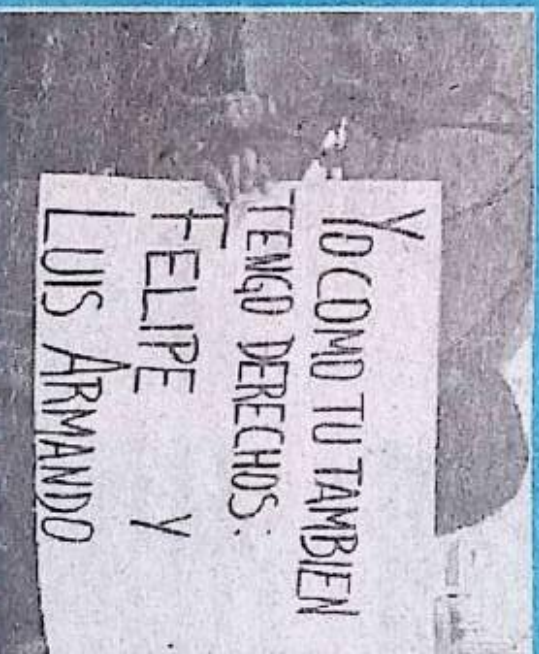 YO COMO TU TAMBIEN
TENGO DERECHOS:
FELIPE Y
LUIS ARMANDO